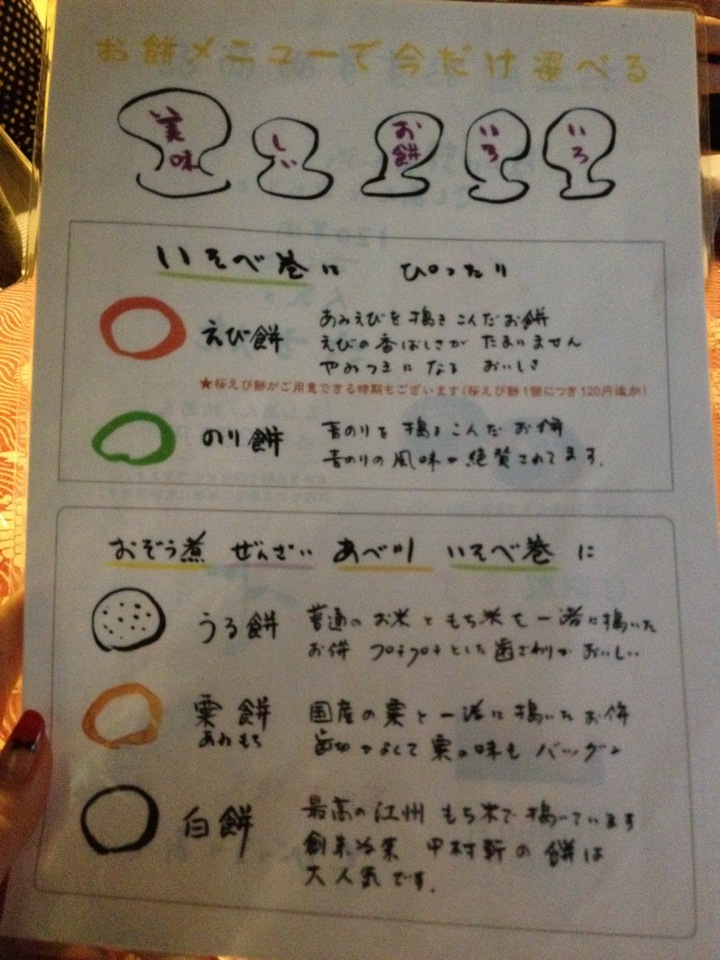 お餅メニューで今だけ選べる
美味しいお餅いろいろ
いそべ巻に ぴったり
えび餅
あみえびを搗きこんだお餅
えびの香ばしさが たまりません
やみつきになる おいしさ
★桜えび餅がご用意できる時期もございます(桜えび餅1個につき120円追加)
のり餅
青のりを搗きこんだお餅
青のりの風味が絶賛されてます。
おぞう煮 ぜんざい あべ川 いそべ巻 に
うる餅
普通のお米ともち米を一緒に搗いた
お餅 プチプチとした歯ざわりがおいしい
粟餅
あわもち
国産の粟と一緒に搗いたお餅
歯切がよくて粟の味もバツグン
白餅
最高の江州もち米で搗いています
創業以来 中村軒の餅は
大人気です。